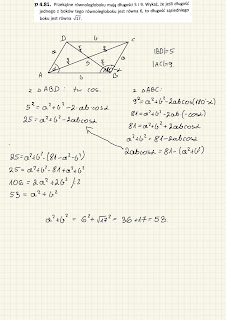 D 4.51. Przekątne równoległoboku mają długości 5 i 9. Wykaż, że jeśli długość
jednego z boków tego równoległoboku jest równa 6, to długość sąsiedniego
boku jest równa √17.
D b C
a a
A b B
|BD|=5
|AC|=9
z △ABD: tw. cos.
5² = a²+b²-2·ab cos α
25 = a²+b²-2ab cos α
z △ABC:
9² = a²+b²-2ab cos(180°-α)
81 = a²+b²-2ab·(-cos α)
81 = a²+b²+2ab cos α
2ab cos α = 81-(a²+b²)
25 = a²+b²-(81-a²-b²)
25 = a²+b²-81+a²+b²
106 = 2a²+2b² /:2
53 = a²+b²
a²+b² = 6²+√17² = 36+17 = 53